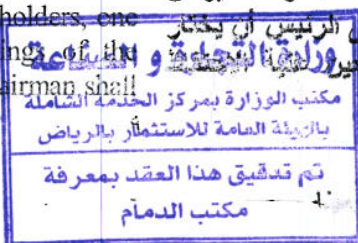 holders, one
ings of the
airman shall
الرئيس أن يختار
وزارة التجارة و الصناعة
مكتب الوزارة بمركز الخدمة الشاملة
بالهيئة العامة للاستثمار بالرياض
تم تدقيق هذا العقد بمعرفة
مكتب الدمام